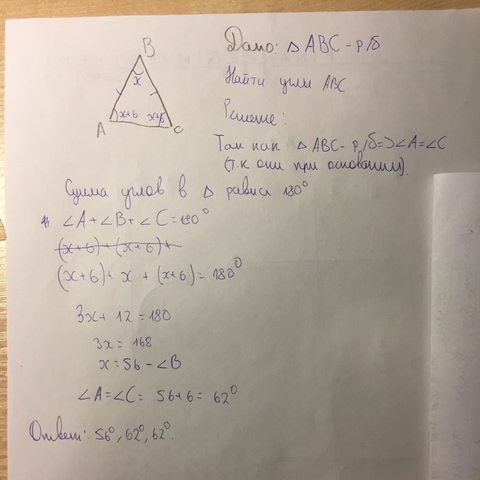 B
x
x+6 x+6
A C
Дано: △ ABC - р/б
Найти углы ABC
Решение:
Так как △ ABC - р/б => ∠A = ∠C
(т.к они при основании).
Сумма углов в △ равна 180°
∠A + ∠B + ∠C = 180°
(x+6) + (x+6) +
(x+6) + x + (x+6) = 180°
3x + 12 = 180
3x = 168
x = 56 - ∠B
∠A = ∠C = 56+6 = 62°
Ответ: 56°, 62°, 62°.